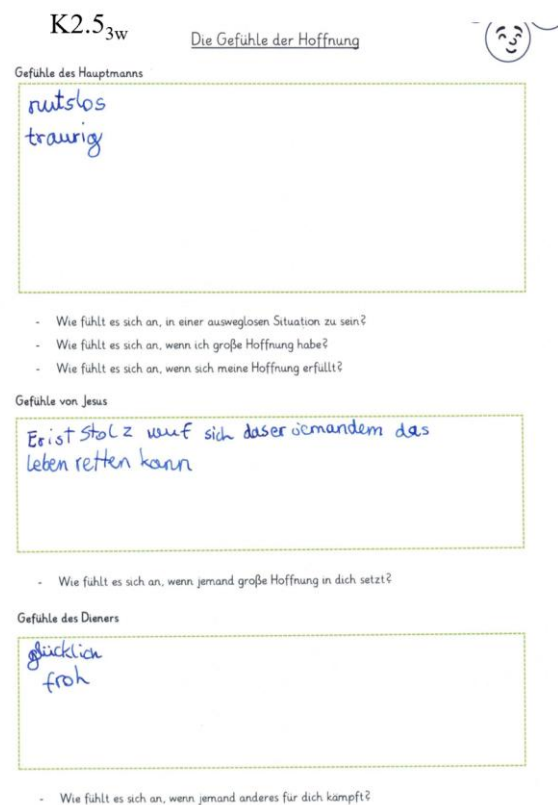 K2.5 3w
Die Gefühle der Hoffnung
Gefühle des Hauptmanns
nutslos
traurig
- Wie fühlt es sich an, in einer ausweglosen Situation zu sein?
- Wie fühlt es sich an, wenn ich große Hoffnung habe?
- Wie fühlt es sich an, wenn sich meine Hoffnung erfüllt?
Gefühle von Jesus
Er ist Stolz auf sich das er jemandem das
leben retten kann
- Wie fühlt es sich an, wenn jemand große Hoffnung in dich setzt?
Gefühle des Dieners
glücklich
froh
- Wie fühlt es sich an, wenn jemand anderes für dich kämpft?